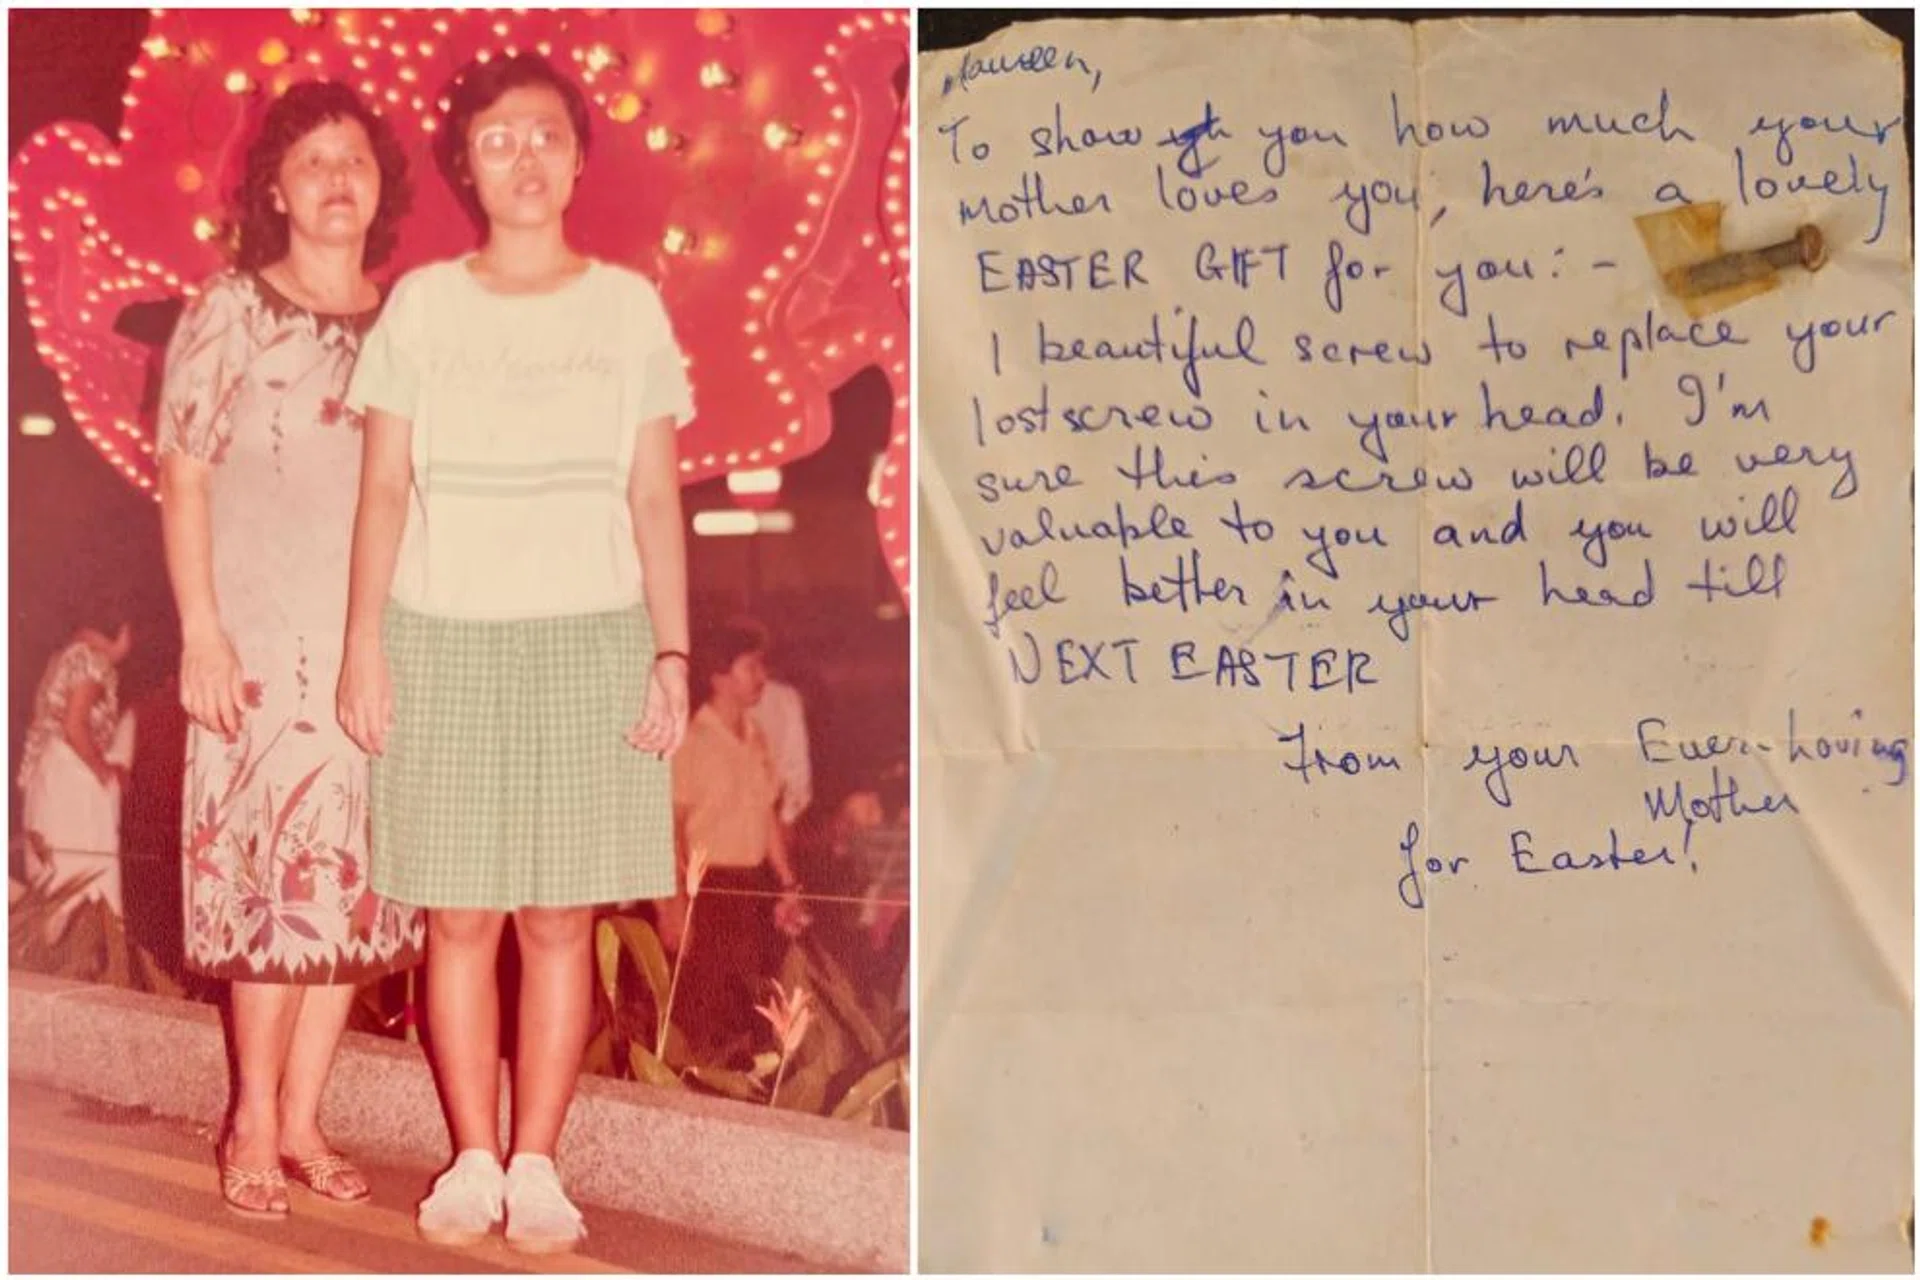 Maureen,
To show you how much your
mother loves you, here's a lovely
EASTER GIFT for you: -
1 beautiful screw to replace your
lost screw in your head. I'm
sure this screw will be very
valuable to you and you will
feel better in your head till
NEXT EASTER
From your Ever-loving
Mother
for Easter!